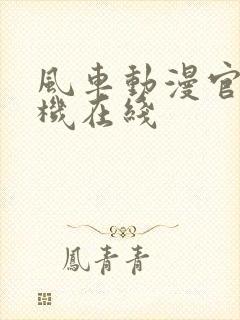 風車動漫官
機在綫
鳳青青